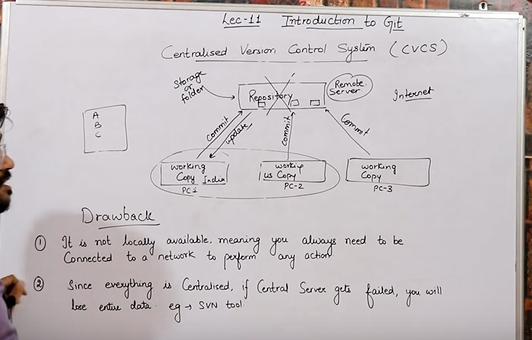 Lec-11 Introduction to Git
Centralised Version Control System (CVCS)
Storage
or
folder
Repository
Remote
Server
Internet
A
B
C
Commit
update
Commit
Commit
working
Copy India
working
US Copy
working
Copy
PC1
PC-2
PC-3
Drawback
① It is not locally available, meaning you always need to be
Connected to a network to perform any action
② Since everything is Centralised, if Central Server gets failed, you will
lose entire data. eg → SVN tool